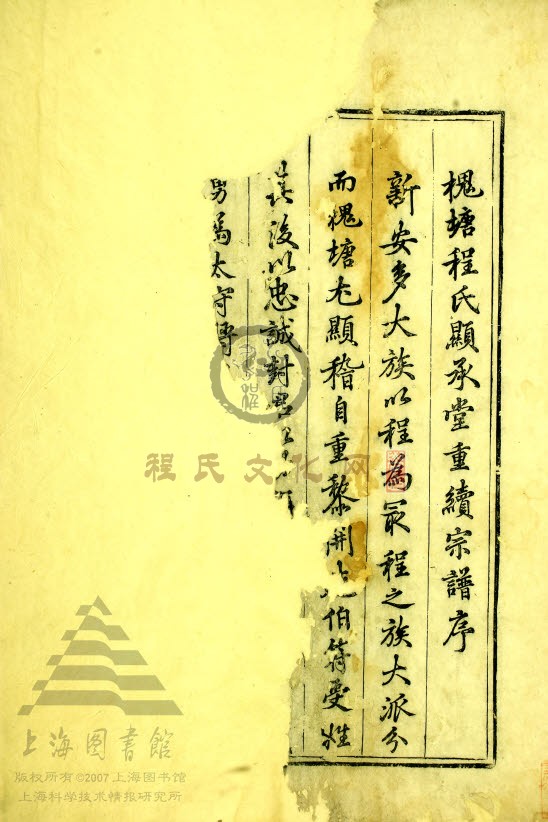 槐塘程氏顯承堂重續宗譜序
新安多大族以程為冣程之族大派分
而槐塘尤顯稽自重黎開 伯符受姓
後以忠誠對君
男為太守
程氏文化网
上海图書館
版权所有©2007上海图书馆
上海科学技术情报研究所